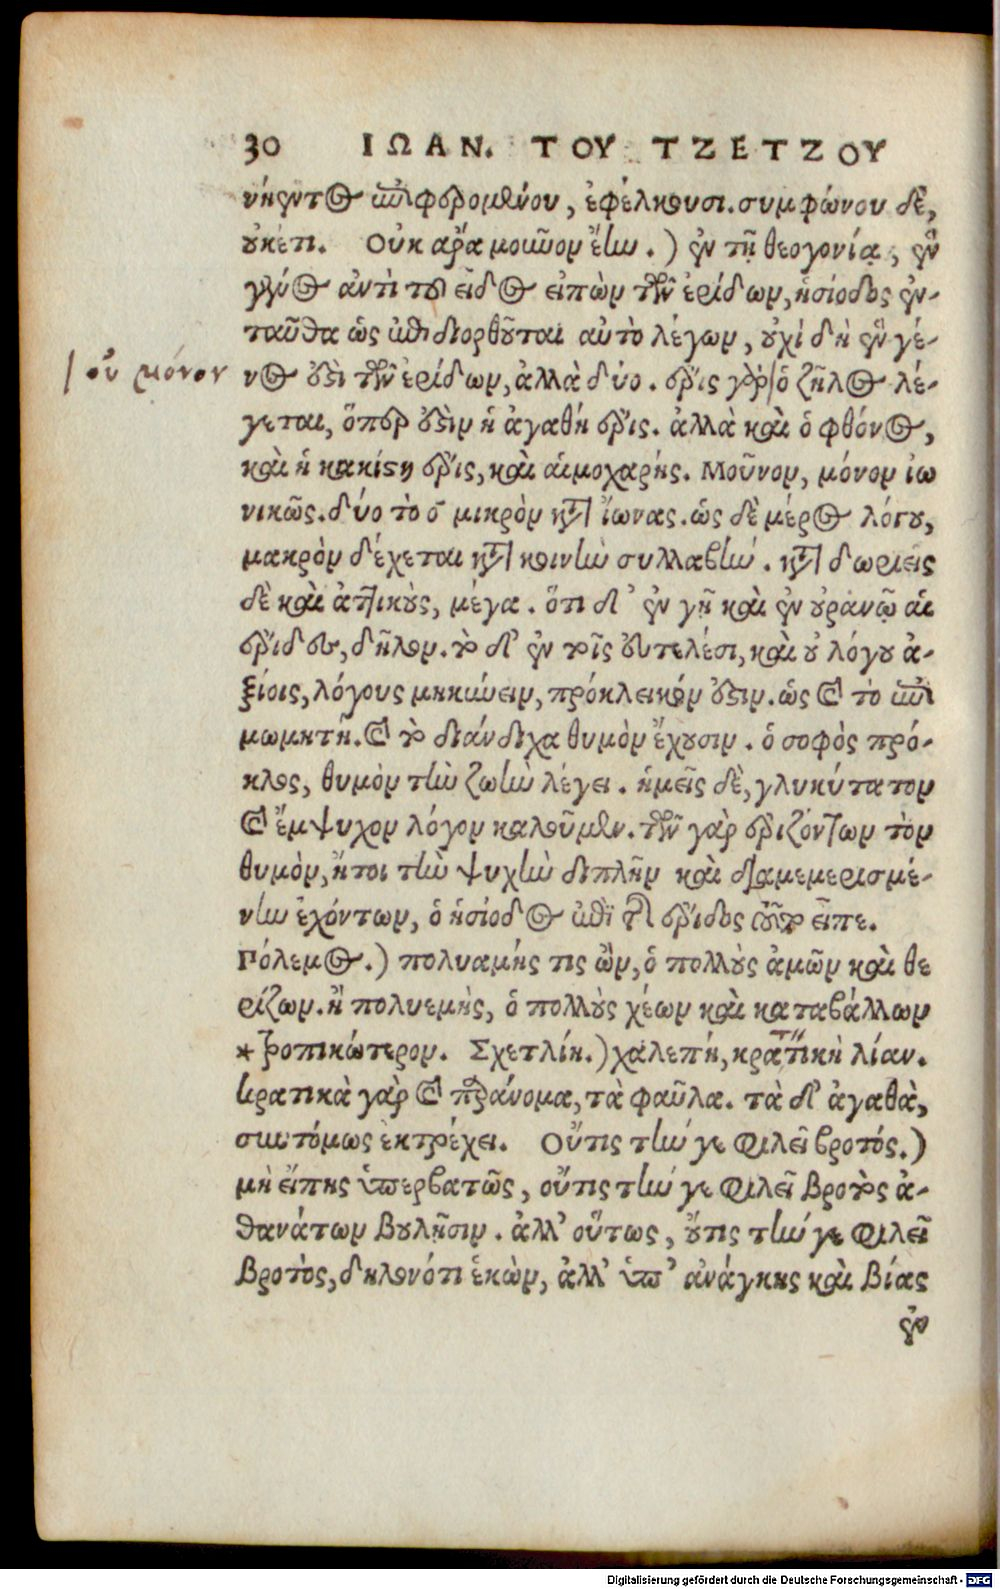 30 ΙΩΑΝ. ΤΟΥ ΤΖΕΤΖΟΥ
νήεντος ἐπιφερομένου, ἐφέλκουσι. συμφώνου δὲ,
οὐκέτι. Οὐκ ἄρα μοῦνον ἔην.) ἐν τῇ θεογονίᾳ, ἓν
γένος ἀντὶ τοῦ εἶδος εἰπὼν τῶν ἐρίδων, ἡσίοδος ἐν-
ταῦθα ὡς ἐπιδιορθοῦται αὐτὸ λέγων, οὐχὶ δὴ ἓν γέ-
| οὐ μόνον
νος ἐστὶ τῶν ἐρίδων, ἀλλὰ δύο. ἔρις γὰρ | ὁ ζῆλος λέ-
γεται, ὅπερ ἐστὶν ἡ ἀγαθὴ ἔρις. ἀλλὰ καὶ ὁ φθόνος,
καὶ ἡ κακίστη ἔρις, καὶ αἱμοχαρής. Μοῦνον, μόνον ἰω
νικῶς. δύο τὸ ο μικρὸν κατ᾽ ἴωνας. ὡς δὲ μέρος λόγου,
μακρὸν δέχεται κατὰ κοινὴν συλλαβήν. κατὰ δωριεῖς
δὲ καὶ ἀττικοὺς, μέγα. ὅτι δ᾽ ἐν γῇ καὶ ἐν οὐρανῷ αἱ
ἔριδες, δῆλον. τὸ δ᾽ ἐν τοῖς εὐτελέσι, καὶ οὐ λόγου ἀ-
ξίοις, λόγους μηκύνειν, πρόκλειον ἐστιν. ὡς καὶ τὸ ἐπι
μωμητή. καὶ τὸ διάνδιχα θυμὸν ἔχουσιν. ὁ σοφὸς πρό-
κλος, θυμὸν τὴν ζωὴν λέγει. ἡμεῖς δὲ, γλυκύτατον
καὶ ἔμψυχον λόγον καλοῦμεν. τῶν γὰρ ἐριζόντων τὸν
θυμὸν, ἤτοι τὴν ψυχὴν διπλῆν καὶ διαμεμερισμέ-
νην ἐχόντων, ὁ ἡσίοδος ἐπὶ τῆς ἔριδος τοῦτο εἶπε.
Πόλεμος.) πολυαμής τις ὢν, ὁ πολλοὺς ἀμῶν καὶ θε
ρίζων. ἢ πολυεμὴς, ὁ πολλοὺς χέων καὶ καταβάλλων
* τροπικώτερον. Σχετλίη.) χαλεπή, κρατητικὴ λίαν.
κρατικὰ γὰρ καὶ παράνομα, τὰ φαῦλα. τὰ δ᾽ ἀγαθὰ,
συντόμως ἐκτρέχει. Οὔτις τήν γε φιλεῖ βροτός.)
μὴ εἴπῃς ὑπερβατῶς, οὔτις τήν γε φιλεῖ βροτὸς ἀ-
θανάτων βουλῇσιν. ἀλλ᾽ οὕτως, οὔτις τήν γε φιλεῖ
βροτὸς, δηλονότι ἑκὼν, ἀλλ᾽ ὑπ᾽ ἀνάγκης καὶ βίας
ἐν
Digitalisierung gefördert durch die Deutsche Forschungsgemeinschaft - DFG